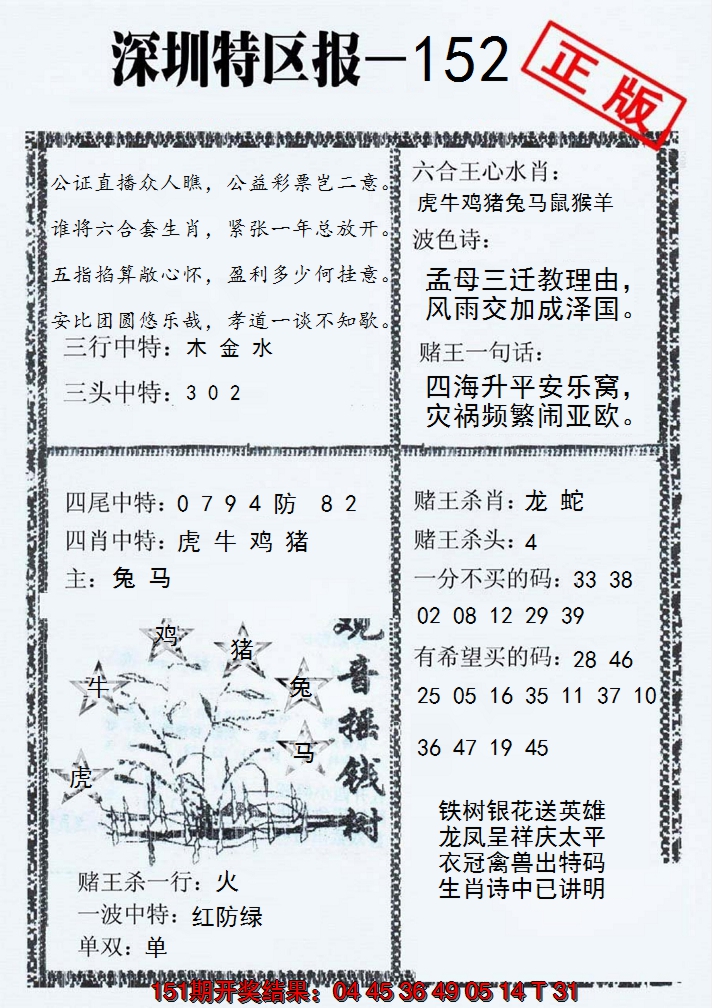 深圳特区报—152
正版
公证直播众人瞧，公益彩票岂二意。
谁将六合套生肖，紧张一年总放开。
五指掐算敞心怀，盈利多少何挂意。
安比团圆悠乐哉，孝道一谈不知歇。
三行中特：木 金 水
三头中特：3 0 2
六合王心水肖：
虎牛鸡猪兔马鼠猴羊
波色诗：
孟母三迁教理由，
风雨交加成泽国。
赌王一句话：
四海升平安乐窝，
灾祸频繁闹亚欧。
四尾中特：0 7 9 4 防 8 2
四肖中特：虎 牛 鸡 猪
主：兔 马
鸡
猪
牛
兔
马
虎
观音摇钱树
赌王杀一行：火
一波中特：红防绿
单双：单
赌王杀肖：龙 蛇
赌王杀头：4
一分不买的码：33 38
02 08 12 29 39
有希望买的码：28 46
25 05 16 35 11 37 10
36 47 19 45
铁树银花送英雄
龙凤呈祥庆太平
衣冠禽兽出特码
生肖诗中已讲明
151期开奖结果：04 45 36 49 05 14 T 31